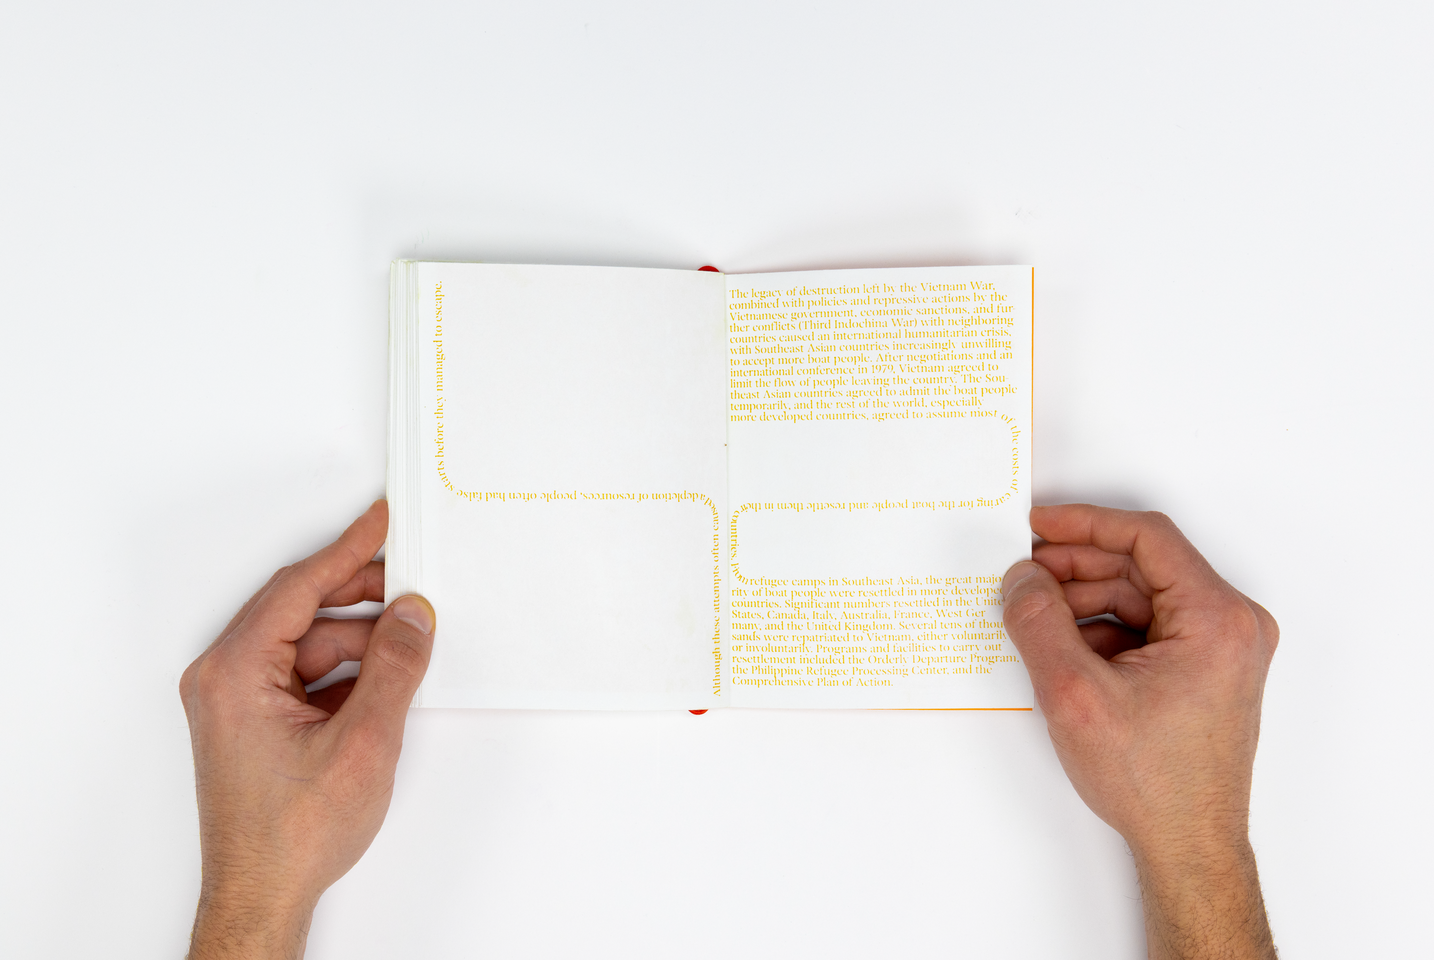 Although these attempts often caused a depletion of resources, people often had false starts before they managed to escape.
The legacy of destruction left by the Vietnam War,
combined with policies and repressive actions by the
Vietnamese government, economic sanctions, and fur-
ther conflicts (Third Indochina War) with neighboring
countries caused an international humanitarian crisis,
with Southeast Asian countries increasingly unwilling
to accept more boat people. After negotiations and an
international conference in 1979, Vietnam agreed to
limit the flow of people leaving the country. The Sou-
theast Asian countries agreed to admit the boat people
temporarily, and the rest of the world, especially
more developed countries, agreed to assume most of the costs of caring for the boat people and resettle them in their countries. From refugee camps in Southeast Asia, the great majo
rity of boat people were resettled in more developed
countries. Significant numbers resettled in the Unite
States, Canada, Italy, Australia, France, West Ger
many, and the United Kingdom. Several tens of thou
sands were repatriated to Vietnam, either voluntarily
or involuntarily. Programs and facilities to carry out
resettlement included the Orderly Departure Program,
the Philippine Refugee Processing Center, and the
Comprehensive Plan of Action.